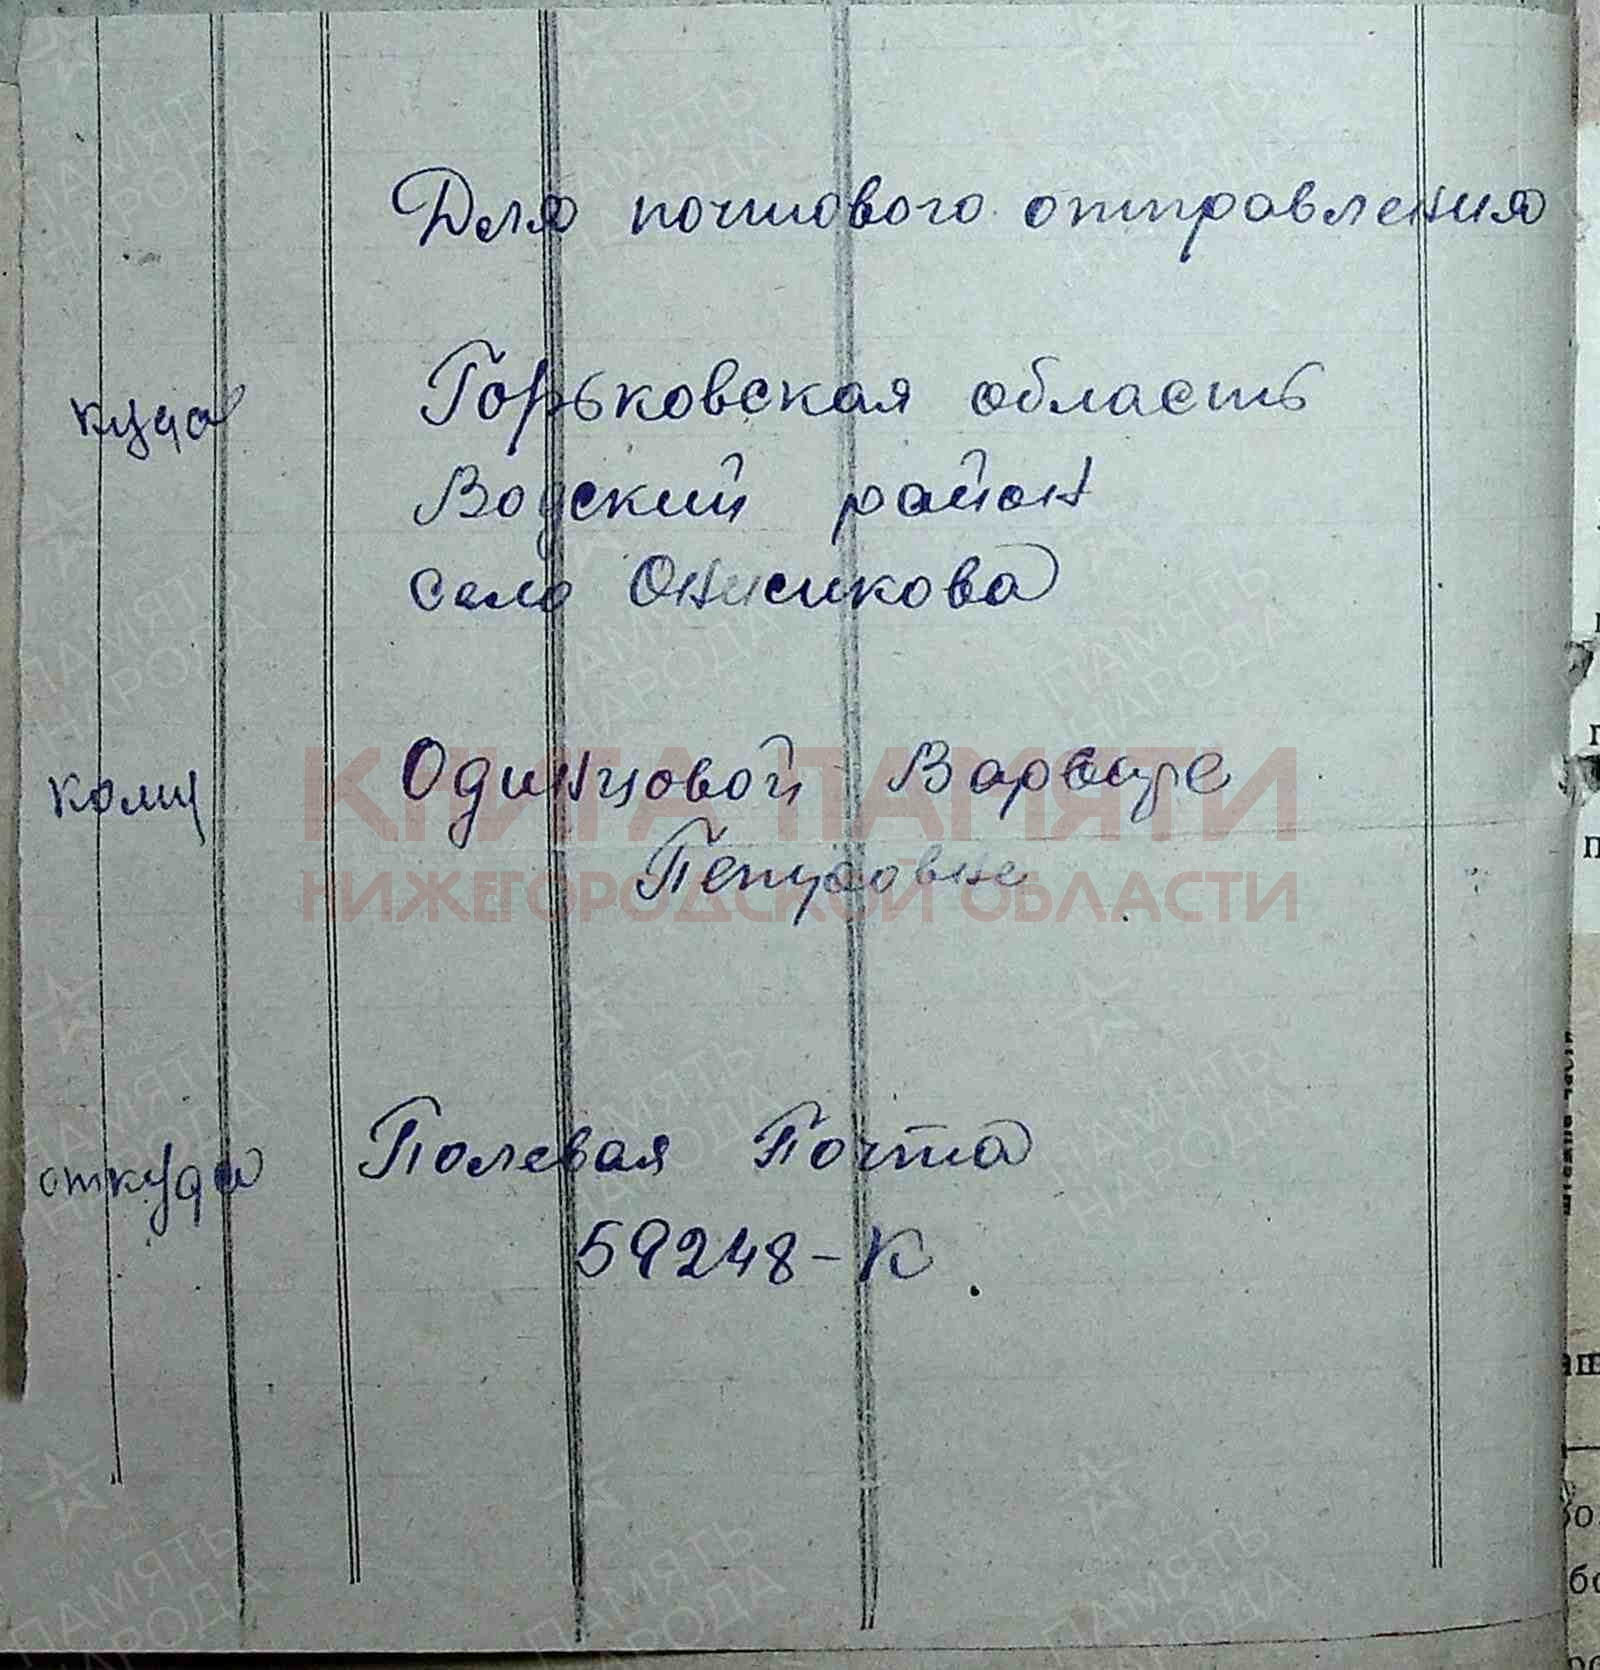 Для почтового отправления
куда Горьковская область
Водский район
село Онисикова
кому Одинцовой Варваре
КНИГА ПАМЯТИ
НИЖЕГОРОДСКОЙ ОБЛАСТИ
откуда Полевая Почта
59248-К
ПАМЯТЬ
НАРОДА